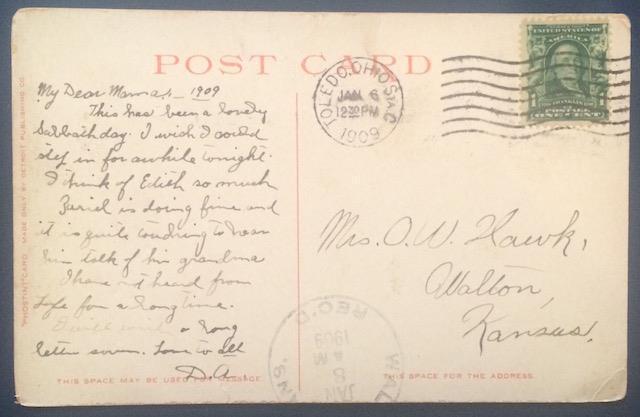 POST CARD
My Dear Mama :- 1909
This has been a lovely
Sabbath day. I wish I could
step in for awhile tonight.
I think of Edith so much
is doing fine and
it is quite to hear
him talk of his grandma
I have not heard from
for a long time.
I will write a long
letter soon. Love to all
D.A.
THIS SPACE MAY BE USED FOR MESSAGE.
"PHOSTINT" CARD. MADE ONLY BY DETROIT PUBLISHING CO.
TOLEDO, OHIO STA. C
JAN 6
12 30 PM
1909
UNITED STATES OF AMERICA
FRANKLIN
POSTAGE
ONE CENT
Mrs. O. W. Hawk,
Walton,
Kansas.
REC'D
1909
A M
8
JAN
WAL
ANS
THIS SPACE FOR THE ADDRESS.